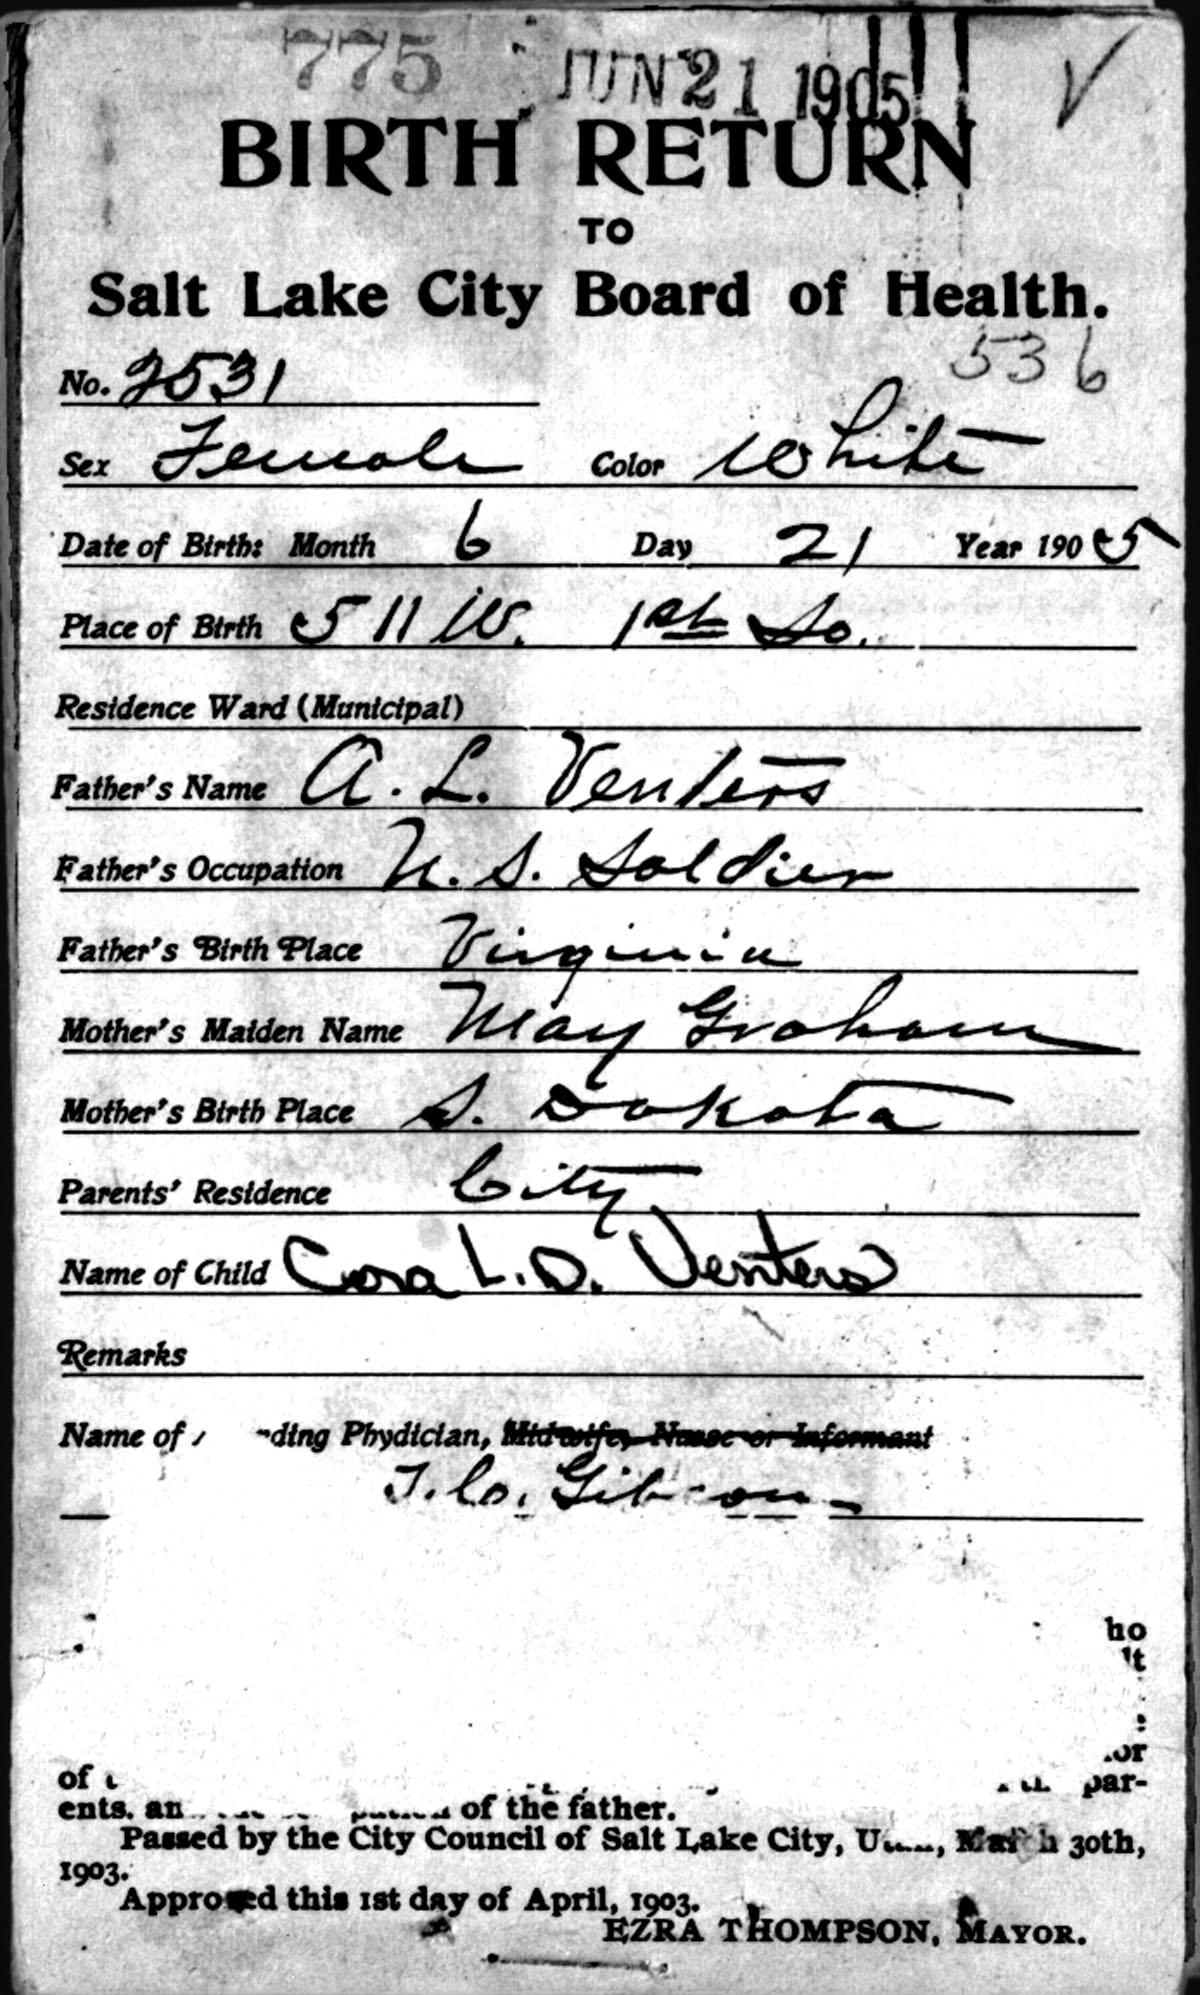 775 JUN 21 1905
BIRTH RETURN
TO
Salt Lake City Board of Health.
536
No. 2531
Sex Female Color White
Date of Birth: Month 6 Day 21 Year 1905
Place of Birth 511 W. 1st So.
Residence Ward (Municipal)
Father's Name A. L. Venters
Father's Occupation U. S. Soldier
Father's Birth Place Virginia
Mother's Maiden Name May Graham
Mother's Birth Place S. Dakota
Parents' Residence City
Name of Child Cora L. D. Venters
Remarks
Name of ding Phydician, Midwife, Nurse or Informant
Gibson
ho
of par-
ents, an of the father.
Passed by the City Council of Salt Lake City, March 30th,
1903.
Approved this 1st day of April, 1903.
EZRA THOMPSON, MAYOR.